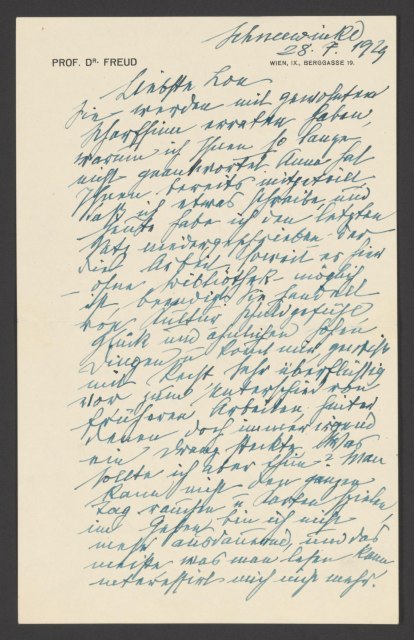 Schneewinkel
28. 7. 1929
PROF. DR. FREUD
WIEN, IX., BERGGASSE 19.
Liebste Lou
Sie werden mit gewohntem
Scharfsinn erraten haben,
warum ich Ihnen so lange
nicht geantwortet. Anna hat
Ihnen bereits mitgeteilt
daß ich etwas schreibe und
heute habe ich den letzten
Satz niedergeschrieben der
die Arbeit soweit es hier
– ohne Bibliothek – möglich
ist, beendigt. Sie handelt
von Kultur, Schuldgefühl
Glück und ähnlichen hohen
Dingen u kommt mir gewiß
mit Recht sehr überflüssig
vor zum Unterschied von
früheren Arbeiten, hinter
denen doch immer irgend
ein Drang steckte. Was
sollte ich aber thun? Man
kann nicht den ganzen
Tag rauchen u Karten spielen,
im Gehen bin ich nicht
mehr ausdauernd, und das
meiste was man lesen kann
interessirt mich nicht mehr.